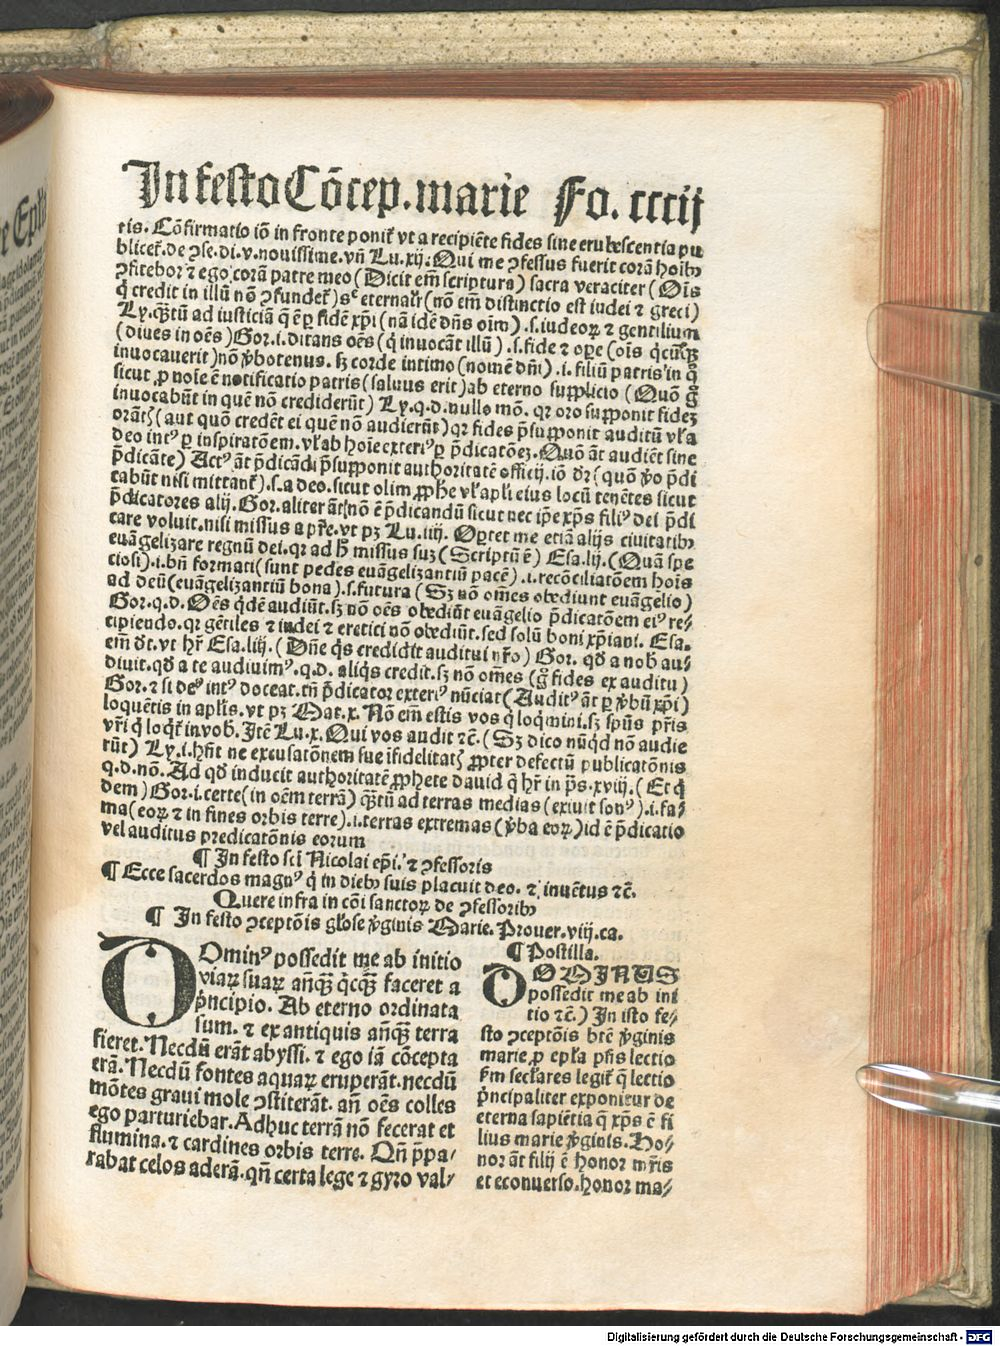 In festo Cōcep. marie Fo. cccij
tis. Cōfirmatio iō in fronte ponit᷑ vt a recipiēte fides sine erubescentia pu
blicet᷑. de ꝯse. di. v. nouissime. vn̄ Lu. xij. Qui me ꝯfessus fuerit corā hoībꝰ
ꝯfitebor ⁊ ego corā patre meo (Dicit em̄ scriptura) sacra veraciter (Oīs
q̇ credit in illū nō ꝯfundet᷑) sᶜ eternalr̄ (nō em̄ distinctio est iudei ⁊ greci)
Ly. qꝫtū ad iusticiā q̄ ē ꝑ fidē xp̄i (nā idē dn̄s oīm). s. iudeoꝝ ⁊ gentilium
(diues in oēs) Gor. i. ditans oēs (q̇ inuocāt illū). s. fide ⁊ oꝑe (oīs q̇cūqꝫ
inuocauerit) nō ꝟbotenus. sꝫ corde intimo (nomē dn̄i). i. filiū patris in q̊
sicut ꝓ noīe ē notificatio patris (saluus erit) ab eterno supplicio (Quō g̊
inuocabūt in quē nō crediderūt) Ly. q. d. nullo mō. qꝛ oro supponit fidez
orātꝭ (aut quō credēt ei quē nō audierūt) qꝛ fides p̄supponit auditū vl̓ a
deo intꝰ ꝑ inspiratōem. vl̓ ab hoīe exteriꝰ ꝑ p̄dicatōez. Quō āt audiēt sine
p̄dicāte) Actꝰ āt p̄dicādi p̄supponit authoritatē officij. iō dr̄ (quō ꝟo p̄di
cabūt nisi mittant᷑). s. a deo. sicut olim ꝓphe vl̓ apl̓i eius locū tenētes sicut
p̄dicatores alij. Gor. aliter āt nō ē p̄dicandū sicut nec ip̄e xp̄s filiꝰ dei p̄di
care voluit. nisi missus a pr̄e. vt pꝫ Lu. iiij. Oꝑtet me etiā alijs ciuitatibꝰ
euāgelizare regnū dei. qꝛ ad h̄ missus suꝫ (Scriptū ē) Esa. lij. (Quā spe
ciosi). i. bn̄ formati (sunt pedes euāgelizantiū pacē). i. recōciliatōem hoīs
ad deū (euāgelizantiū bona). s. futura (Sꝫ nō om̄es obediunt euāgelio)
Gor. q. d. Oēs q̇dē audiūt. sꝫ nō oēs obediūt euāgelio p̄dicatōem eiꝰ re⸗
cipiendo. qꝛ gētiles ⁊ iudei ⁊ eretici nō obediūt. sed solū boni xp̄iani. Esa.
em̄ dīt. vt hr̄ Esa. liij. (Dn̄e q̇s credidit auditui nr̄o) Gor. qd̄ a nob̄ au⸗
diuit. qd̄ a te audiuimꝰ. q. d. aliq̇s credit. sꝫ nō om̄es (g̊ fides ex auditu)
Gor. ⁊ si deꝰ intꝰ doceat. tn̄ p̄dicator exteriꝰ nūciat (Auditꝰ āt ꝑ ꝟbū xp̄i)
loquētis in apl̓is. vt pꝫ Mat. x. Nō em̄ estis vos q̇ loq̇mini. sꝫ spūs pr̄is
vr̄i q̇ loq̇t᷑ in vob̄. Itē Lu. x. Qui vos audit ⁊c̄. (Sꝫ dico nūq̇d nō audie
rūt) Ly. i. hn̄t ne excusatōnem sue īfidelitatꝭ ꝓpter defectū publicatōnis
q. d. nō. Ad qd̄ inducit authoritatē ꝓphete dauid q̄ hr̄ in p̄s. xviij. (Et q̇
dem) Gor. i. certe (in oēm terrā) qꝫtū ad terras medias (exiuit sonꝰ). i. fa⸗
ma (eoꝝ ⁊ in fines orbis terre). i. terras extremas (ꝟba eoꝝ) id ē p̄dicatio
vel auditus predicatōnis eorum
¶ In festo sci̅ Nicolai ep̄i. ⁊ ꝯfessoris
¶ Ecce sacerdos magnꝰ q̇ in diebꝰ suis placuit deo. ⁊ inuētus ⁊c̄.
Quere infra in cōi sanctoꝝ de ꝯfessoribꝰ
¶ In festo ꝯceptōis gl̓ose ꝟginis Marie. Prouer. viij. ca.
DOminꝰ possedit me ab initio
viaꝝ suaꝝ an̄qꝫ q̇cqꝫ faceret a
p̄ncipio. Ab eterno ordinata
sum. ⁊ ex antiquis an̄qꝫ terra
fieret. Necdū erāt abyssi. ⁊ ego iā cōcepta
erā. Necdū fontes aquaꝝ eruperāt. necdū
mōtes graui mole ꝯstiterāt. an̄ oēs colles
ego parturiebar. Adhuc terrā nō fecerat et
flumina. ⁊ cardines orbis terre. Qn̄ p̄pa⸗
rabat celos aderā. qn̄ certa lege ⁊ gyro val⸗
¶ Postilla.
DOMINUS
possedit me ab ini
tio ⁊c̄.) In isto fe⸗
sto ꝯceptōis bt̄e ꝟginis
marie ꝓ epl̓a p̄ns lectio
ẜm secl̓ares legit᷑ q̄ lectio
p̄ncipaliter exponitur de
eterna sapiētia q̄ xp̄s ē fi
lius marie ꝟginis. Ho⸗
nor āt filij ē honor mr̄is
et econuerso. honor ma⸗
Digitalisierung gefördert durch die Deutsche Forschungsgemeinschaft - DFG